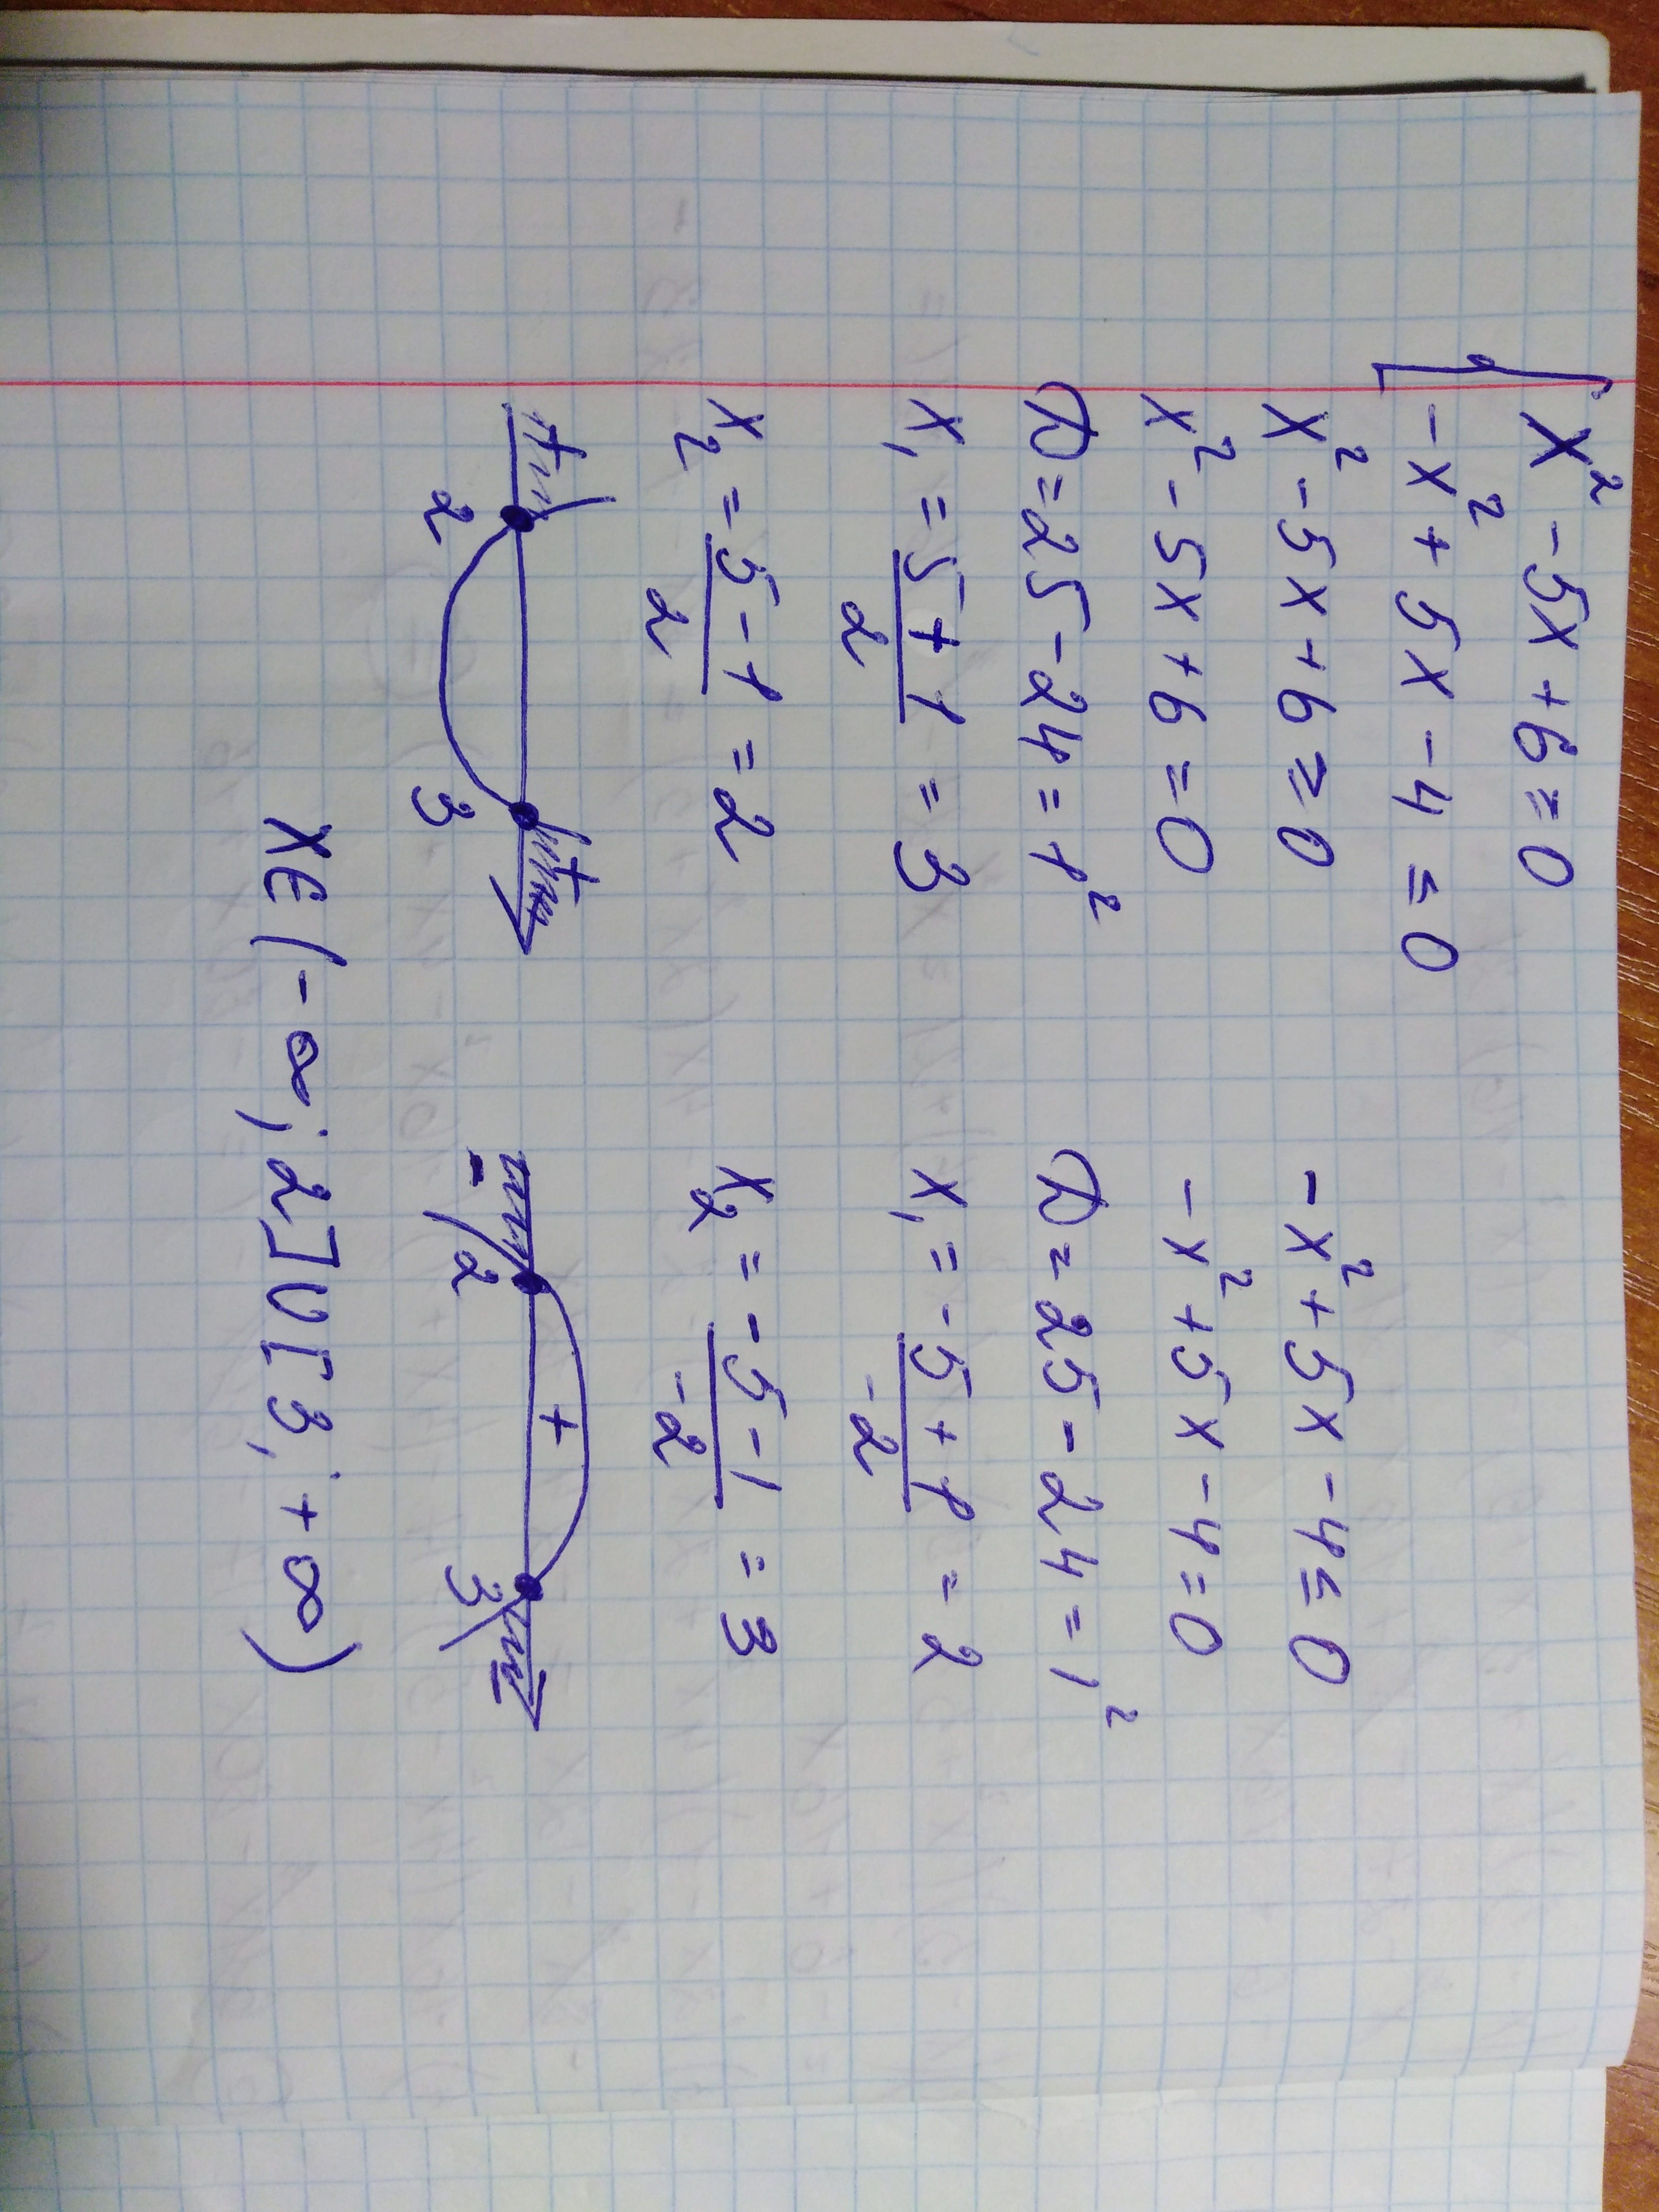 { x² - 5x + 6 ≥ 0
- x² + 5x - 4 ≤ 0
x² - 5x + 6 ≥ 0
x² - 5x + 6 = 0
D = 25 - 24 = 1²
x₁ = (5 + 1)/2 = 3
x₂ = (5 - 1)/2 = 2
+ 2 3 +
- x² + 5x - 4 ≤ 0
- x² + 5x - 4 = 0
D = 25 - 24 = 1²
x₁ = (-5 + 1)/(-2) = 2
x₂ = (-5 - 1)/(-2) = 3
- 2 + 3 -
x ∈ (-∞; 2] ∪ [3; +∞)